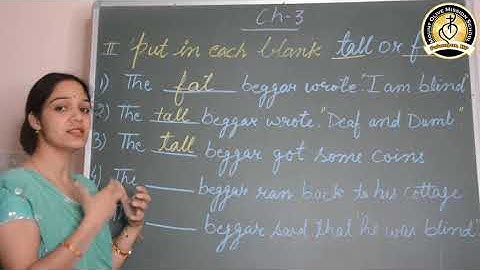 Ch-3
II put in each blank tall or
1) The fat beggar wrote "I am blind"
2) The tall beggar wrote. "Deaf and Dumb"
3) The tall beggar got some coins
4) The ____ beggar ran back to his cottage
____ beggar said that "he was blind"
MOUNT OLIVE MISSION SCHOOL